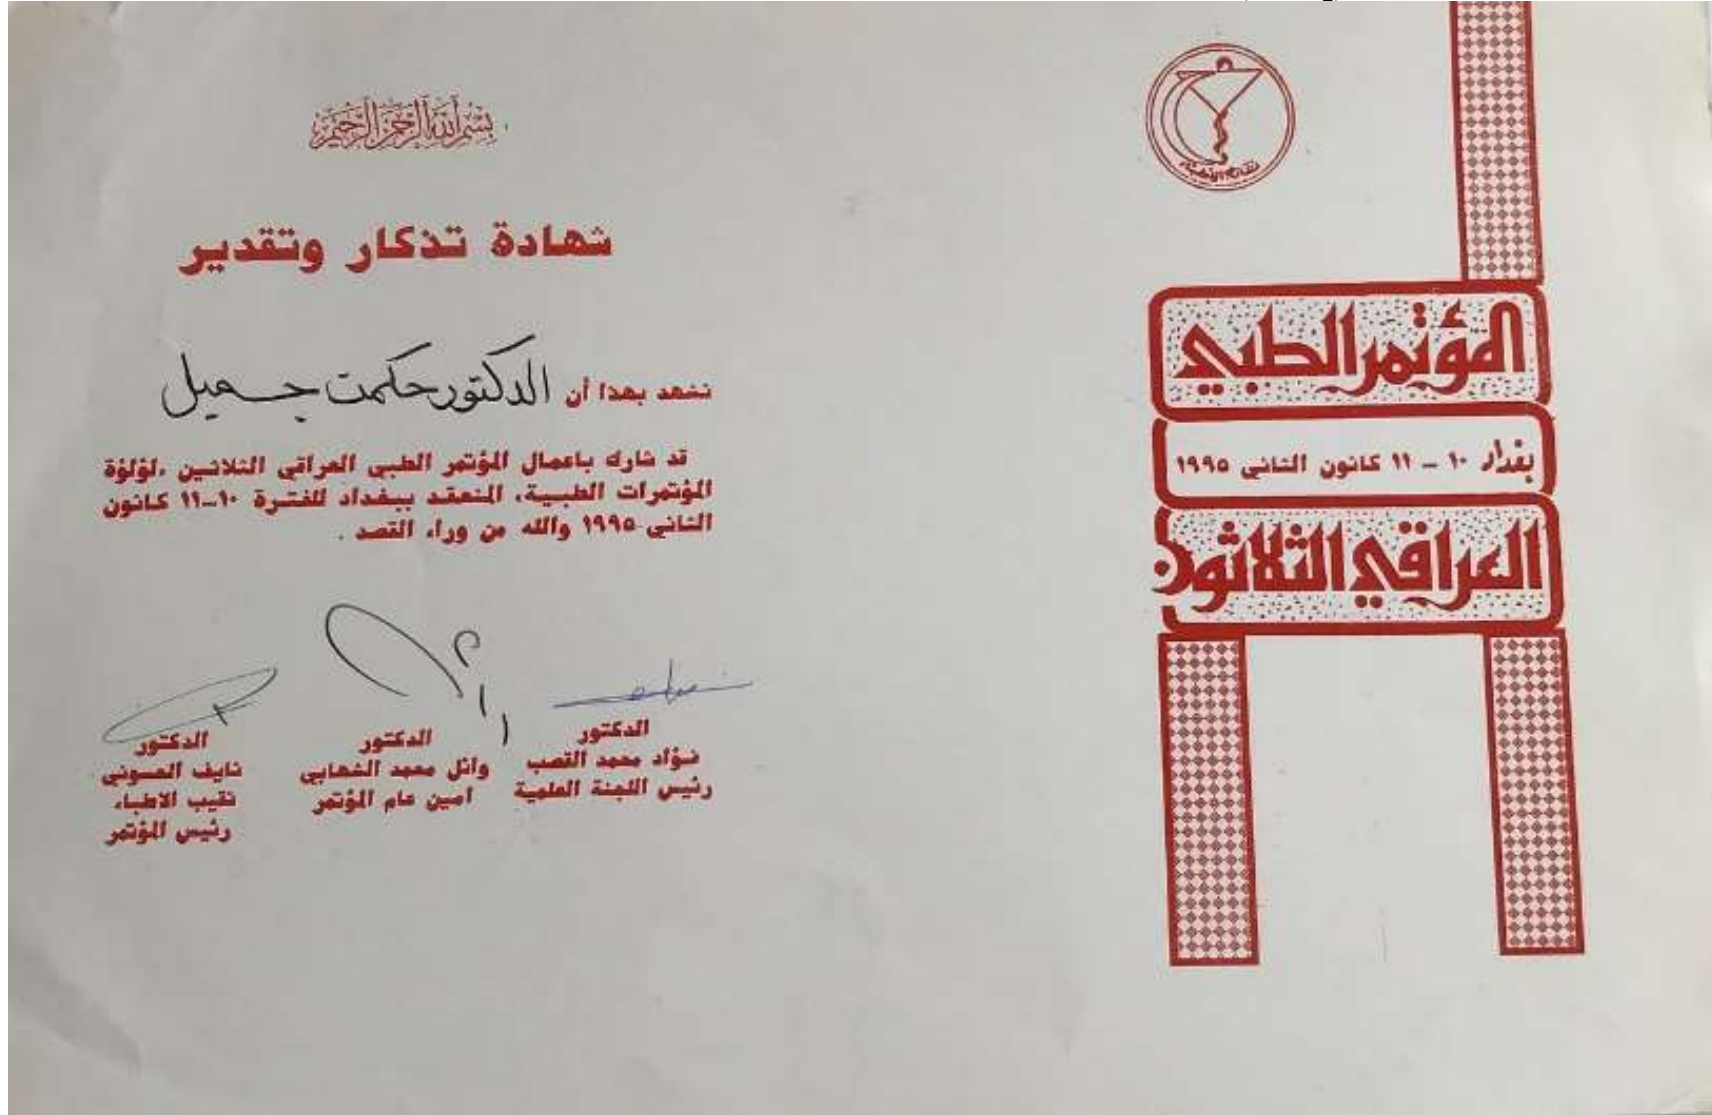 نقابة الأطباء
المؤتمر الطبي
بغداد ١٠ - ١١ كانون الثاني ١٩٩٥
العراقي الثلاثون
بسم الله الرحمن الرحيم
شهادة تذكار وتقدير
نشهد بهذا أن الدكتور حكمت جميل
قد شارك باعمال المؤتمر الطبي العراقي الثلاثين ،لؤلؤة
المؤتمرات الطبية، المنعقد ببغداد للفترة ١٠-١١ كانون
الثاني ١٩٩٥ والله من وراء القصد .
الدكتور
فؤاد محمد القصب
رئيس اللجنة العلمية
الدكتور
وائل محمد الشهابي
امين عام المؤتمر
الدكتور
نايف الحسوني
نقيب الاطباء
رئيس المؤتمر